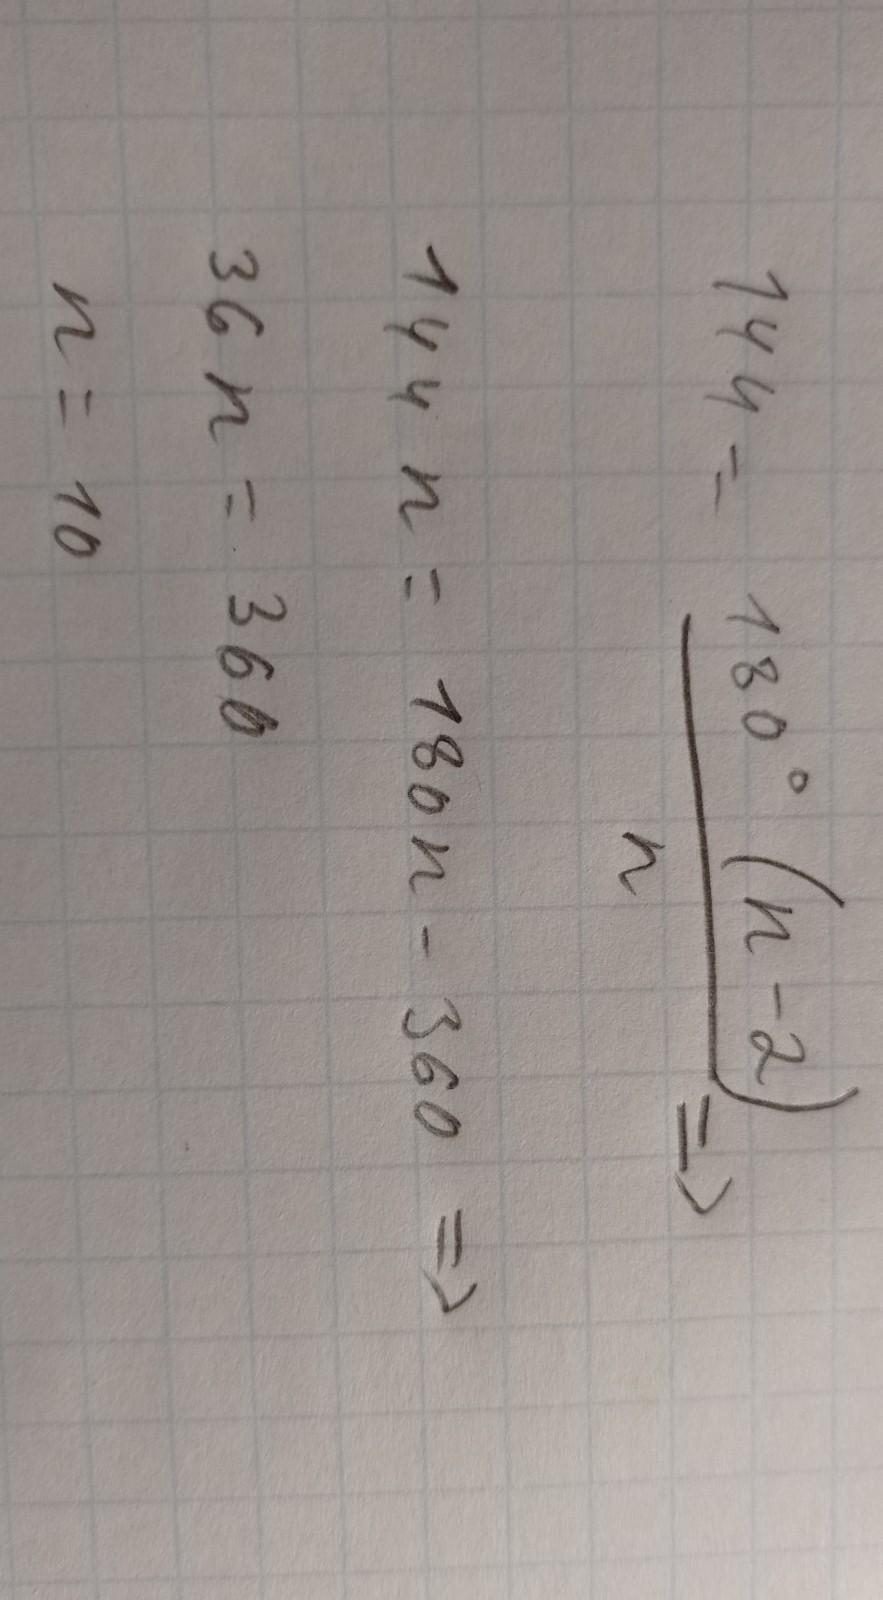 144 = 180° (n-2) / n =>
144n = 180n - 360 =>
36n = 360
n = 10